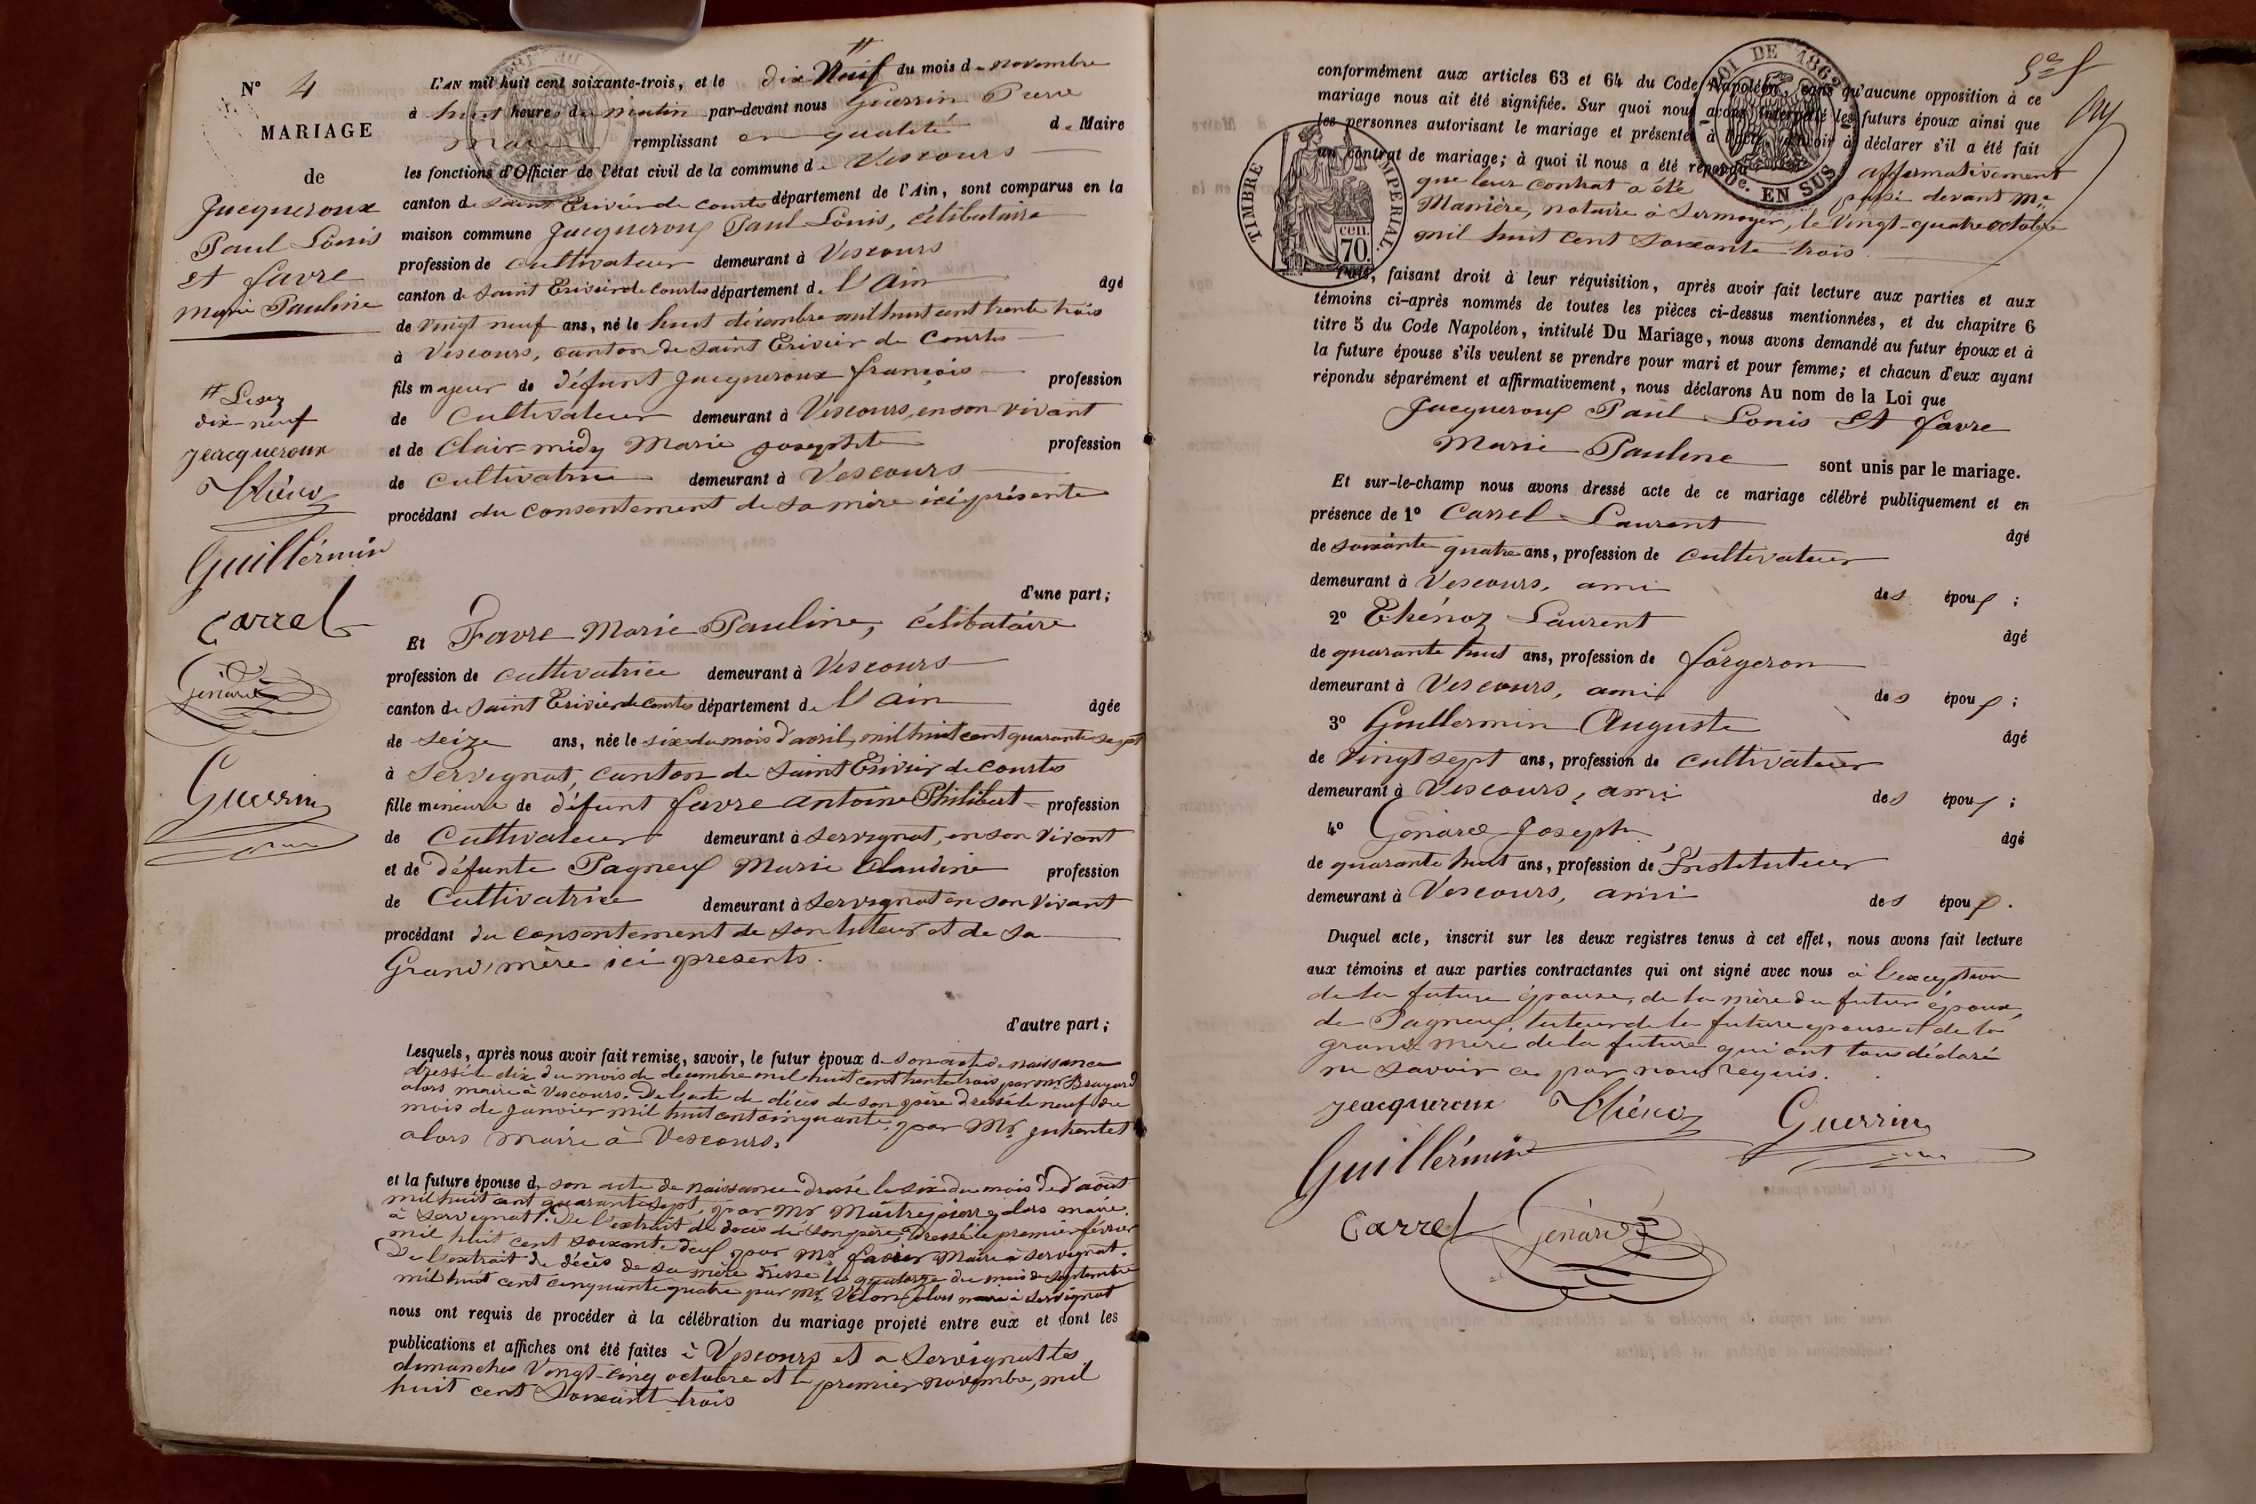 N° 4
MARIAGE
de
Jacqueroux
Paul Louis
et favre
Marie Pauline
# Lisez
dix-neuf
jeacqueroux
Thénoz
Guillérmin
Carrel
Génarel
Guerrin
L'AN mil huit cent soixante-trois, et le dix Neuf du mois de novembre
à huit heures du matin par-devant nous Guerrin Pierre
Maire remplissant en qualité de Maire
les fonctions d'Officier de l'état civil de la commune de Vescours
canton de Saint Trivier de Courtes département de l'Ain, sont comparus en la
maison commune Jacqueroux Paul Louis, célibataire
profession de cultivateur demeurant à Vescours
canton de Saint Trivier de Courtes département de l'Ain âgé
de vingt neuf ans, né le huit décembre mil huit cent trente trois
à Vescours, canton de Saint Trivier de Courtes
fils majeur de défunt Jacqueroux françois profession
de Cultivateur demeurant à Vescours, en son vivant
et de Clair-midy Marie Josephte profession
de cultivatrice demeurant à Vescours
procédant du consentement de sa mère ici présente
d'une part;
Et Favre Marie Pauline, célibataire
profession de cultivatrice demeurant à Vescours
canton de Saint Trivier de Courtes département de l'Ain âgée
de seize ans, née le six du mois d'avril, mil huit cent quarante sept
à Servignat, canton de Saint Trivier de Courtes
fille mineure de défunt favre Antoine Philibert profession
de Cultivateur demeurant à Servignat, en son vivant
et de défunte Pagneux Marie Claudine profession
de Cultivatrice demeurant à Servignat en son vivant
procédant du consentement de son tuteur et de sa
Grand, mère ici presents.
d'autre part;
Lesquels, après nous avoir fait remise, savoir, le futur époux de son acte de naissance
dressé le dix du mois de décembre mil huit cent trente trois par mr Brayard
alors maire à Vescours. De l'acte de décès de son père dressé le neuf du
mois de Janvier mil huit cent cinquante par Mr
alors maire à Vescours.
et la future épouse de son acte de naissance dressé le six du mois d'août
mil huit cent quarante sept, par Mr Maitrepierre, alors maire
à Servignat. De l'extrait de décès de son père, dressé le premier février
mil huit cent soixante deux par Mr favier Maire à Servignat.
De l'extrait de décès de sa mère dressé le quatorze du mois de septembre
mil huit cent cinquante quatre par Mr Velon alors maire à Servignat
nous ont requis de procéder à la célébration du mariage projeté entre eux et dont les
publications et affiches ont été faites à Vescours et a Servignat les
dimanches Vingt-cinq octobre et le premier novembre, mil
huit cent Soixante trois
conformément aux articles 63 et 64 du Code Napoléon, sans qu'aucune opposition à ce
mariage nous ait été signifiée. Sur quoi nous avons interpellé les futurs époux ainsi que
les personnes autorisant le mariage et présentes à l'acte, d'avoir à déclarer s'il a été fait
un contrat de mariage; à quoi il nous a été répondu affirmativement
que leur contrat a été passé devant Me
Manière, notaire à Sermoyer, le Vingt-quatre octobre
mil huit cent soixante trois.
TIMBRE IMPÉRIAL
70 cen.
LOI DE 1862
EN SUS
Puis, faisant droit à leur réquisition, après avoir fait lecture aux parties et aux
témoins ci-après nommés de toutes les pièces ci-dessus mentionnées, et du chapitre 6
titre 5 du Code Napoléon, intitulé Du Mariage, nous avons demandé au futur époux et à
la future épouse s'ils veulent se prendre pour mari et pour femme; et chacun d'eux ayant
répondu séparément et affirmativement, nous déclarons Au nom de la Loi que
Jacqueroux Paul Louis et favre
Marie Pauline sont unis par le mariage.
Et sur-le-champ nous avons dressé acte de ce mariage célébré publiquement et en
présence de 1° Carrel Laurent âgé
de soixante quatre ans, profession de cultivateur
demeurant à Vescours, ami des époux ;
2° Thénoz Laurent âgé
de quarante huit ans, profession de forgeron
demeurant à Vescours, ami des époux ;
3° Guillermin Auguste âgé
de vingt sept ans, profession de cultivateur
demeurant à Vescours, ami des époux ;
4° Génarel Joseph âgé
de quarante huit ans, profession de Instituteur
demeurant à Vescours, ami des époux .
Duquel acte, inscrit sur les deux registres tenus à cet effet, nous avons fait lecture
aux témoins et aux parties contractantes qui ont signé avec nous à l'exception
de la future épouse, de la mère du futur époux,
de Pagneux, tuteur de la future epouse et de la
grand mère de la future qui ont tous déclaré
ne savoir ce par nous requis.
jeacqueroux Thénoz Guerrin
Guillérmin
Carrel Génarel